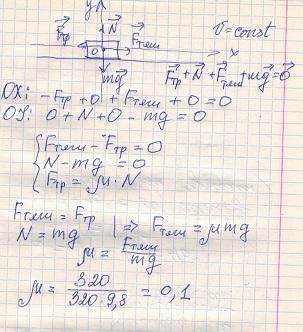 y N⃗ υ=const
F⃗тр F⃗тяги
0 x
mg⃗ F⃗тр+N⃗+F⃗тяги+mg⃗=0
OX: -Fтр+0+Fтяги+0=0
OY: 0+N+0-mg=0
Fтяги-Fтр=0
N-mg=0
Fтр=μ·N
Fтяги=Fтр
N=mg |=> Fтяги=μmg
μ=Fтяги/mg
μ=320/320·9,8=0,1